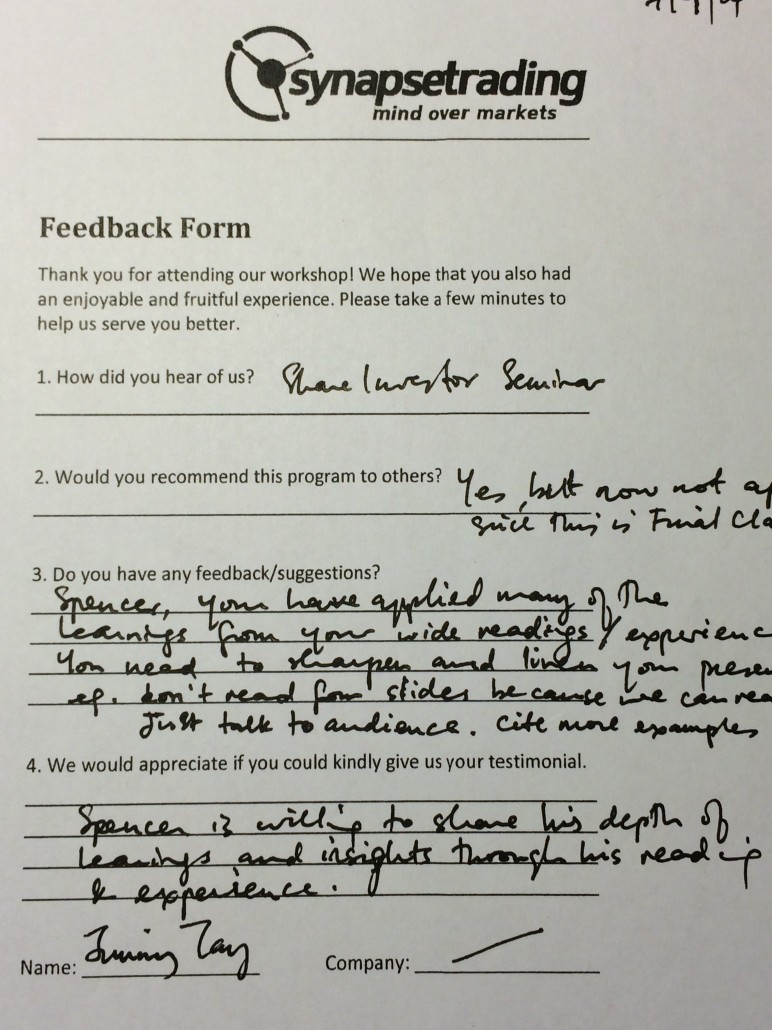 synapsetrading
mind over markets
Feedback Form
Thank you for attending our workshop! We hope that you also had
an enjoyable and fruitful experience. Please take a few minutes to
help us serve you better.
1. How did you hear of us? Share Investor Seminar
2. Would you recommend this program to others? Yes, but now not
since this is Final Cla
3. Do you have any feedback/suggestions?
Spencer, you have applied many of the
learnings from your wide readings / experienc
You need to sharpen and liven your presen
eg. don't read from slides because we can rea
Just talk to audience. Cite more examples
4. We would appreciate if you could kindly give us your testimonial.
Spencer is willing to share his depth of
learnings and insights through his reading
& experience.
Name: Tay
Company: